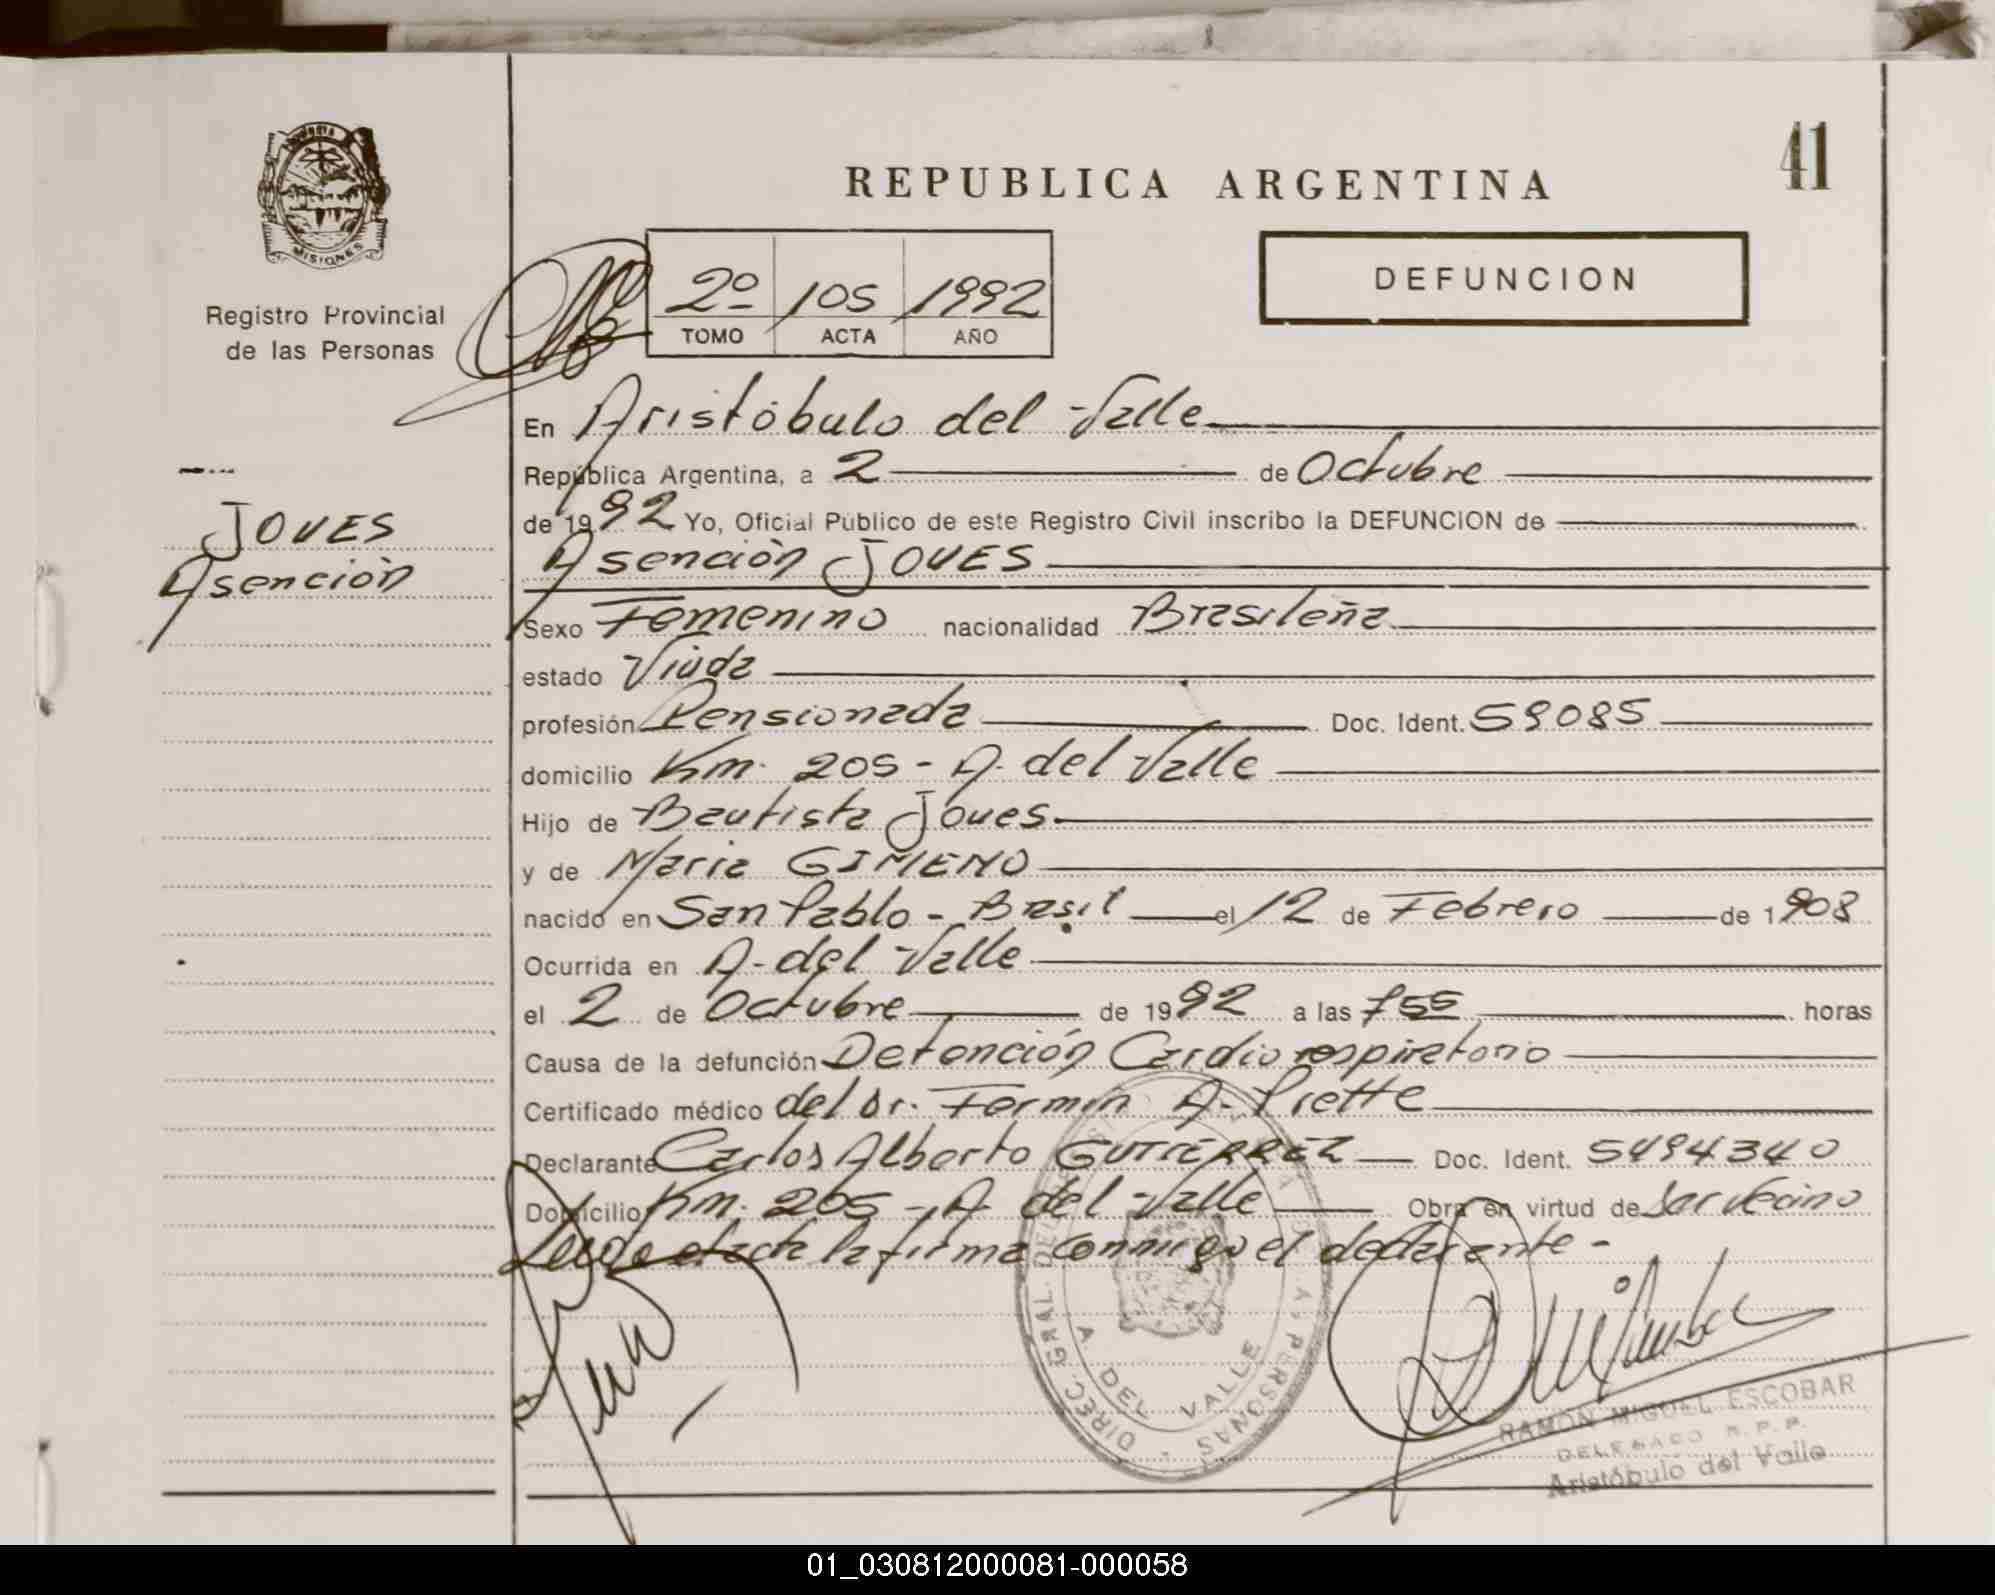 41
REPUBLICA ARGENTINA
MISIONES
Registro Provincial
de las Personas
2º 105 1992
TOMO ACTA AÑO
DEFUNCION
JOVES
Asención
En Aristóbulo del Valle
República Argentina, a 2 de Octubre
de 1992 Yo, Oficial Público de este Registro Civil inscribo la DEFUNCION de
Asención JOVES
Sexo Femenino nacionalidad Brasileña
estado Viuda
profesión Pensionada Doc. Ident. 59085
domicilio Km. 205 - A. del Valle
Hijo de Bautista Joves
y de Maria GIMENO
nacido en San Pablo - Brasil el 12 de Febrero de 1908
Ocurrida en A. del Valle
el 2 de Octubre de 1992 a las 755 horas
Causa de la defunción Detención Cardiorespiratorio
Certificado médico del Dr. Fermin A. Piette
Declarante Carlos Alberto GUTIERREZ Doc. Ident. 5494340
Domicilio Km. 205 - A del Valle Obra en virtud de Ser Vecino
Leida el acta la firma conmigo el declarante -
DIREC. GRAL. DE PERSONAS
A DEL VALLE
RAMON MIGUEL ESCOBAR
DELEGADO R.P.P.
Aristóbulo del Valle
01_030812000081-000058